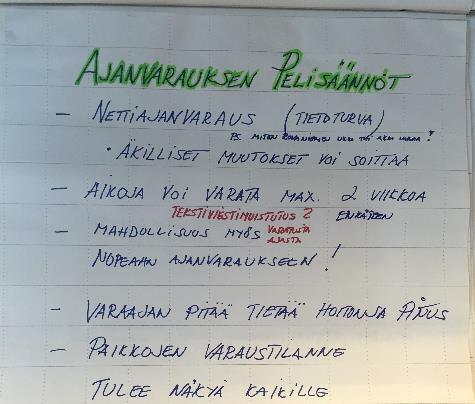 AJANVARAUKSEN PELISÄÄNNÖT
- NETTIAJANVARAUS (TIETOTURVA)
PS. MITEN UKKI TAI AKKI VARAA?
• ÄKILLISET MUUTOKSET VOI SOITTAA
- AIKOJA VOI VARATA MAX. 2 VIIKKOA
ENNAKKOON
TEKSTIVIESTIMUISTUTUS?
VARATUSTA
AJASTA
- MAHDOLLISUUS MYÖS
NOPEAAN AJANVARAUKSEEN!
- VARAAJAN PITÄÄ TIETÄÄ HOITONSA
- PAIKKOJEN VARAUSTILANNE
TULEE NÄKYÄ KAIKILLE